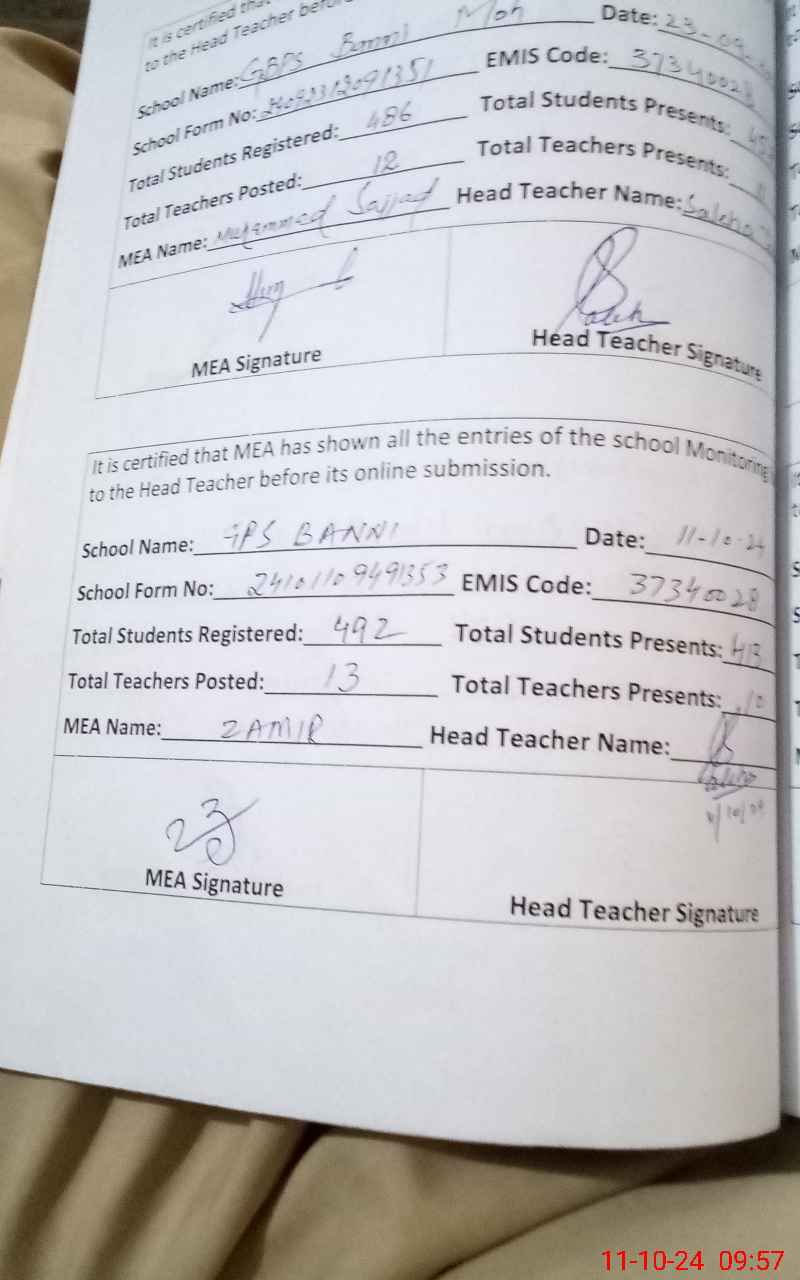 It is certified that
to the Head Teacher before
School Name: GBPS Banni Moh Date: 23-09-
School Form No: 24092312091351 EMIS Code: 37340028
Total Students Registered: 486 Total Students Presents:
Total Teachers Posted: 12 Total Teachers Presents: 11
MEA Name: Muhammad Sajjad Head Teacher Name: Saleha
MEA Signature Head Teacher Signature
It is certified that MEA has shown all the entries of the school Monitoring
to the Head Teacher before its online submission.
School Name: GPS BANNI Date: 11-10-24
School Form No: 24101109491353 EMIS Code: 37340028
Total Students Registered: 492 Total Students Presents: 413
Total Teachers Posted: 13 Total Teachers Presents: 10
MEA Name: ZAMIR Head Teacher Name:
Saleha
MEA Signature Head Teacher Signature
11-10-24 09:57